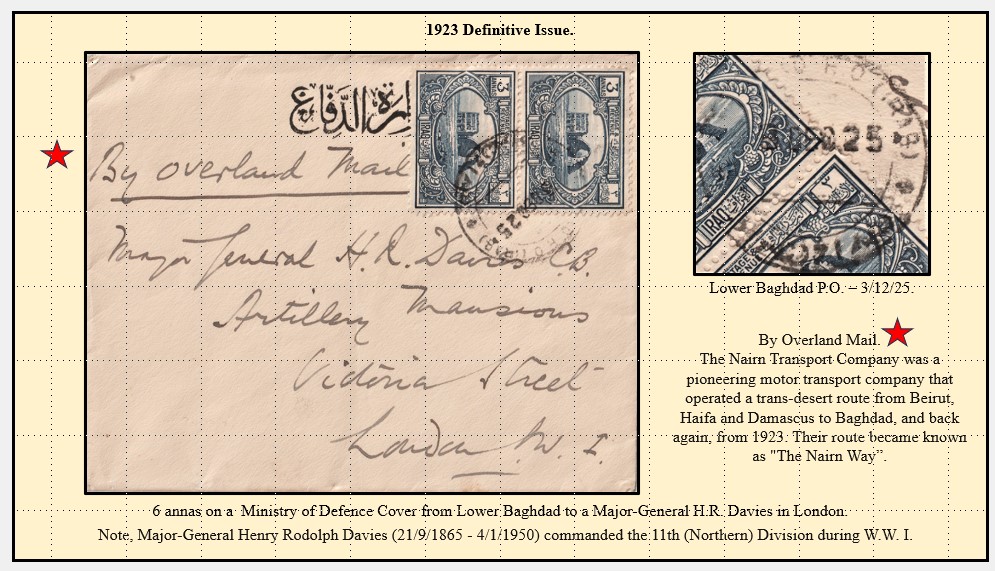 1923 Definitive Issue.
وزارة الدفاع
By overland Mail
3
3
IRAQ
Major General H. R. Davies C.B.
Artillery Mansions
Victoria Street
London S.W. 1.
25
IRAQ
Lower Baghdad P.O. – 3/12/25.
By Overland Mail.
The Nairn Transport Company was a
pioneering motor transport company that
operated a trans-desert route from Beirut,
Haifa and Damascus to Baghdad, and back
again, from 1923. Their route became known
as "The Nairn Way”.
6 annas on a Ministry of Defence Cover from Lower Baghdad to a Major-General H.R. Davies in London.
Note, Major-General Henry Rodolph Davies (21/9/1865 - 4/1/1950) commanded the 11th (Northern) Division during W.W. I.